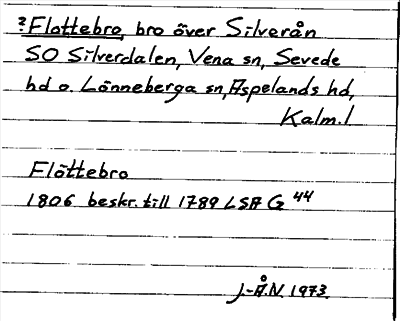 ?Flottebro, bro över Silverån
SO Silverdalen, Vena sn, Sevede
hd o. Lönneberga sn, Aspelands hd,
Kalm. l
Flöttebro
1806 beskr. till 1789 LSA G 44
J.-Å.N. 1973